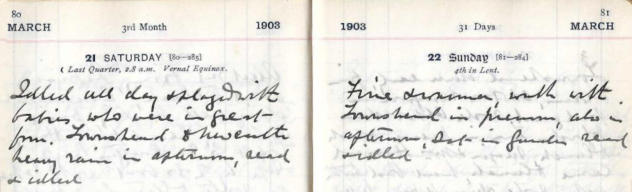 80
MARCH 3rd Month 1903
21 SATURDAY [80-285]
☾ Last Quarter, 2.8 a.m. Vernal Equinox.
Idled all day & played with
babies who were in great
form. Townshend &
heavy rain in afternoon, read
& idled
81
1903 31 Days MARCH
22 Sunday [81-284]
4th in Lent.
Fine & warmer, walk with
Townshend in forenoon, also in
afternoon, Sat in garden read
& idled